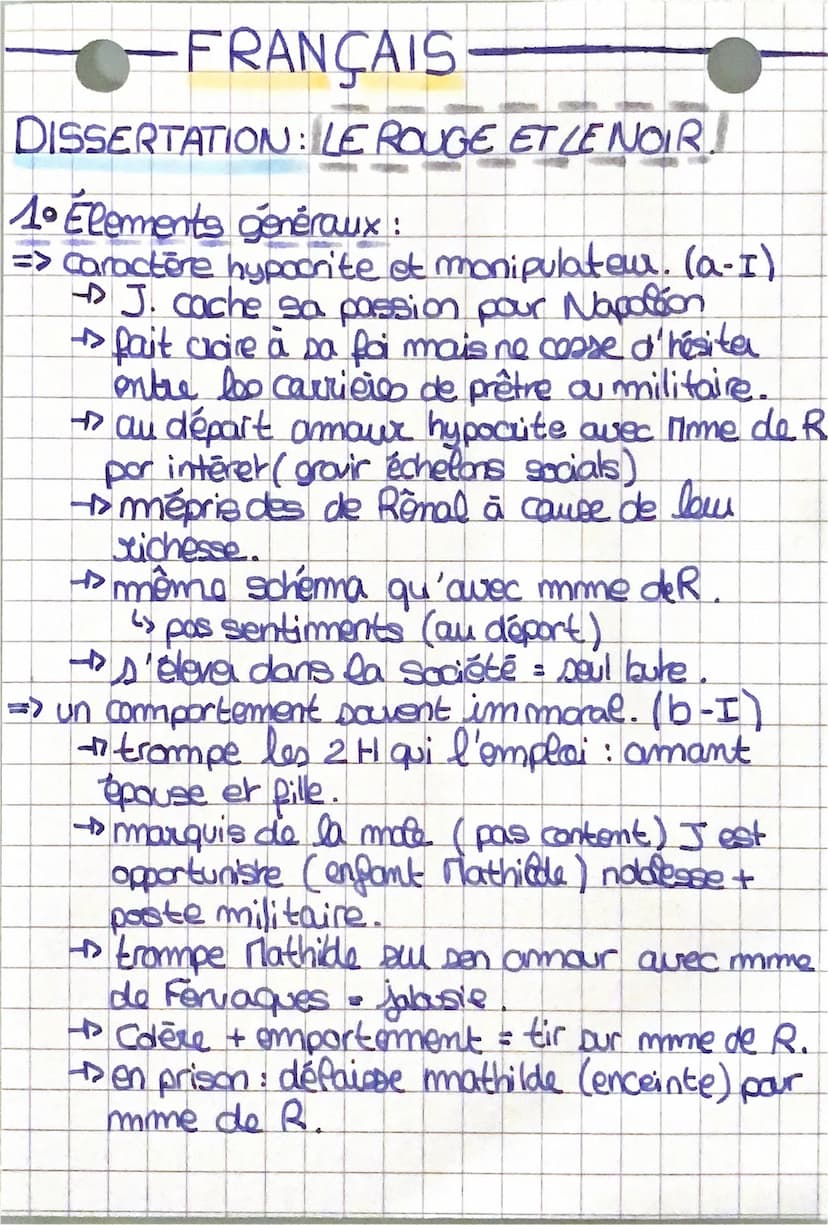 FRANÇAIS
DISSERTATION: LE ROUGE ET LE NOIR.
1° Élements généraux :
=> caractère hypocrite et manipulateur. (a-I)
→ J. cache sa passion pour Napoléon
→ fait croire à sa foi mais ne cesse d'hésiter
entre les carrières de prêtre ou militaire.
→ au départ amour hypocrite avec Mme de R
par intérer (gravir échelons socials)
→ mépris des de Rênal à cause de leur
richesse.
→ même schéma qu'avec mme de R.
↳ pas sentiments (au départ)
→ s'élever dans la société = seul bute.
=> un comportement souvent immoral. (b-I)
→ trompe les 2 H qui l'emploi : amant
épouse et fille.
→ marquis de la mole (pas content) J est
opportuniste (enfant Mathilde) noblesse +
poste militaire.
→ trompe Mathilde sur son amour avec mme
de Fervaques = jalousie.
→ Colère + emportement = tir sur mme de R.
→ en prison : délaisse mathilde (enceinte) pour
mme de R.